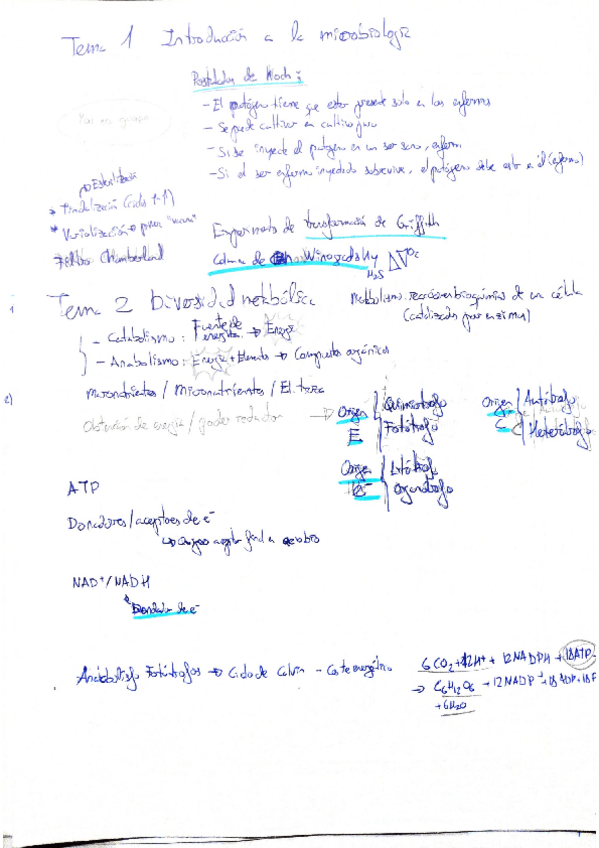 Tema 1 Introducción a la microbiología
Postulados de Koch:
- El patógeno tiene que estar presente solo en los enfermos
- Se puede cultivar en cultivo puro
- Si se inyecta el patógeno en un ser sano, enferm
- Si el ser enfermo inyectado sobrevive, el patógeno debe estar en él (enfermo)
Esterilización
Tindalización (ciclo 1-1)
Filtros Chamberland
Experimento de transformación de Griffith
Columna de Winogradsky
H₂S O₂
Tema 2 Diversidad metabólica
Metabolismo: reacciones bioquímicas de una célula
(catalizadas por enzimas)
- Catabolismo: Fuente de energía → Energía
- Anabolismo: Energía + Elementos → Compuestos orgánicos
Macronutrientes / Micronutrientes / El. traza
Obtención de energía / poder reductor →
Origen E Quimiótrofo Fotótrofo
Origen C Autótrofo Heterótrofo
Origen e⁻ Litótrofo Organótrofo
ATP
Donadores/aceptores de e⁻
↳ Oxígeno aceptor final en aerobio
NAD⁺/NADH
Donador de e⁻
Fotótrofos → Ciclo de Calvin - Coste energético
6CO₂ + 12H⁺ + 12NADPH + 18ATP
→ C₆H₁₂O₆ + 12NADP⁺ + 18ADP + 18P
+ 6H₂O